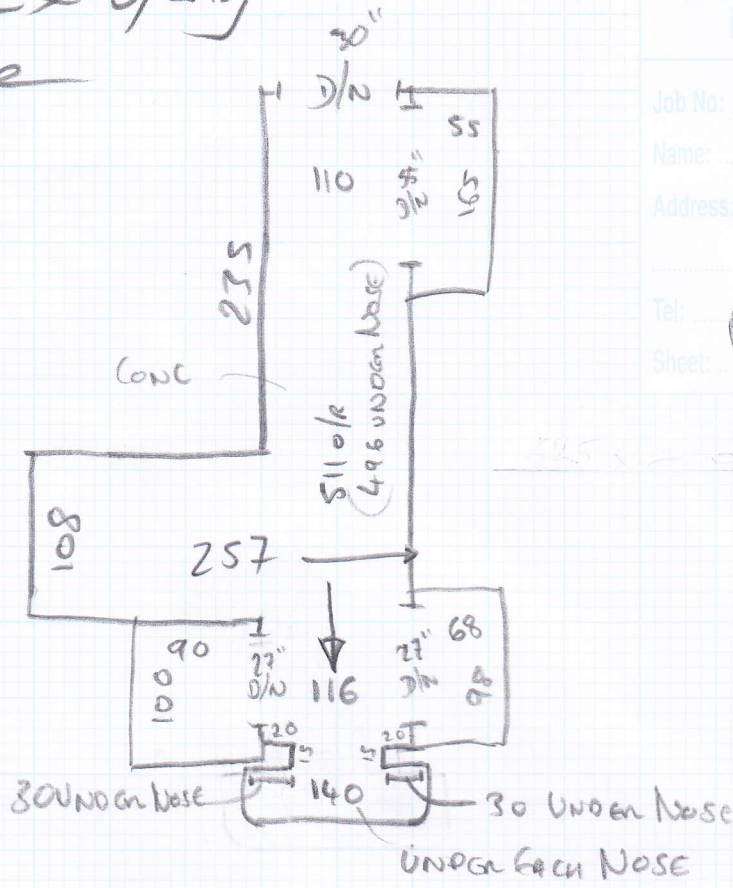 30"
D/N
55
110
D/N
165
235
CONC
511 O/R
(496 UNDER NOSE)
108
257
90
100
27"
D/N
116
27"
D/N
68
98
20
15
20
15
30 UNDER NOSE
140
30 UNDER NOSE
UNDER EACH NOSE
Job No:
Name:
Address:
Tel:
Sheet: